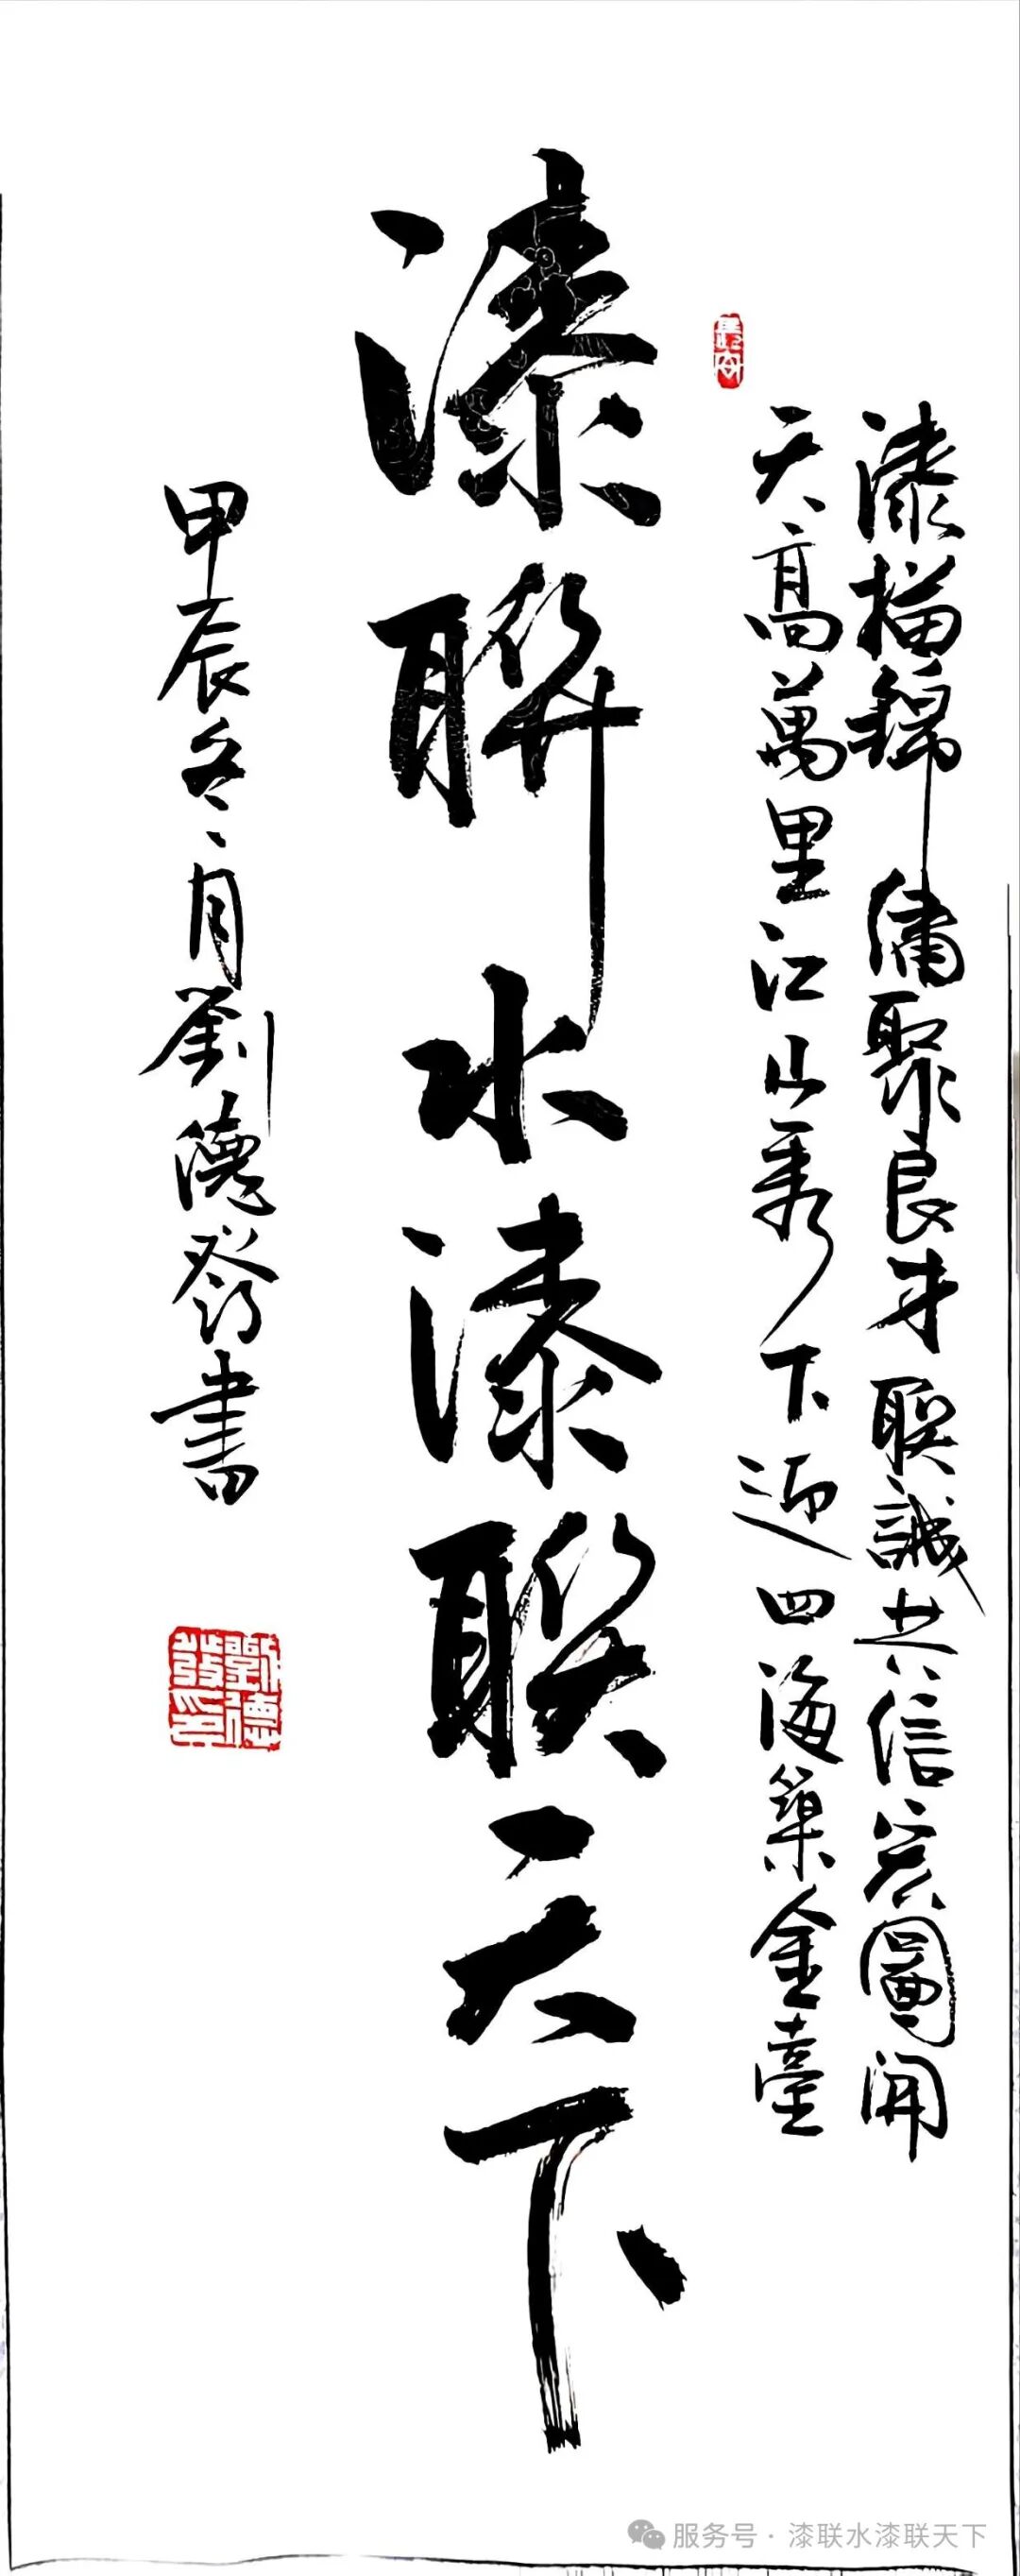 漆描錦繡聚良才聯誠共信宏圖開
天高萬里江山秀下迎四海築金臺
漆聯水漆联天下
甲辰冬月劉德發書
劉德發印
服务号 · 漆联水漆联天下